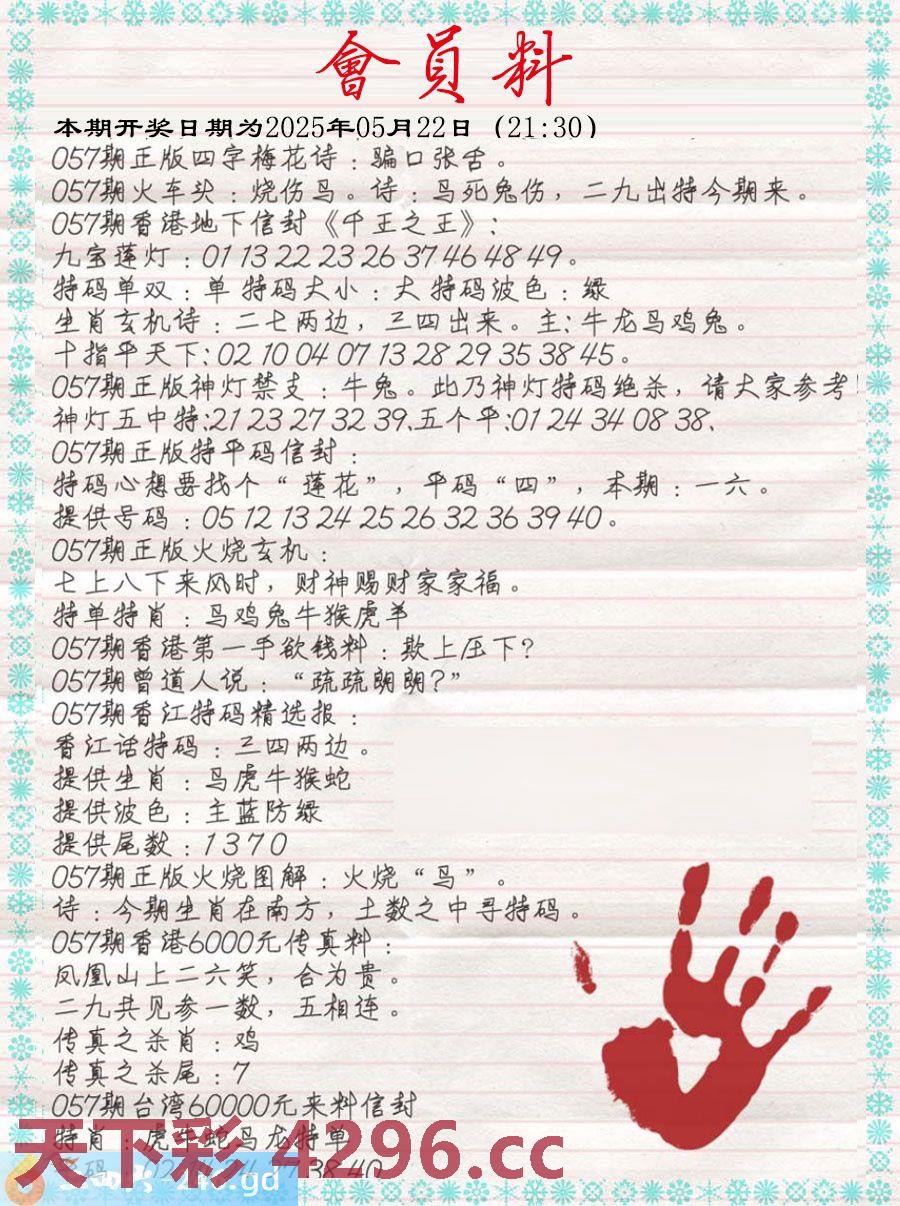 會員料
本期开奖日期为2025年05月22日（21:30）
057期正版四字梅花诗：骗口张舌。
057期火车头：烧伤鸟。诗：鸟死兔伤，二九出特今期来。
057期香港地下信封《千王之王》：
九宝莲灯：01 13 22 23 26 37 46 48 49。
特码单双：单 特码大小：大 特码波色：绿
生肖玄机诗：二七两边，三四出来。主：牛龙鸟鸡兔。
十指平天下：02 10 04 07 13 28 29 35 38 45。
057期正版神灯禁支：牛兔。此乃神灯特码绝杀，请大家参考！
神灯五中特：21 23 27 32 39、五个平：01 24 34 08 38、
057期正版特平码信封：
特码心想要找个“莲花”，平码“四”，本期：一六。
提供号码：05 12 13 24 25 26 32 36 39 40。
057期正版火烧玄机：
七上八下来风时，财神赐财家家福。
特单特肖：鸟鸡兔牛猴虎羊
057期香港第一手欲钱料：欺上压下？
057期曾道人说：“疏疏朗朗？”
057期香江特码精选报：
香江话特码：三四两边。
提供生肖：鸟虎牛猴蛇
提供波色：主蓝防绿
提供尾数：1 3 7 0
057期正版火烧图解：火烧“鸟”。
诗：今期生肖在南方，土数之中寻特码。
057期香港6000元传真料：
凤凰山上二六笑，合为贵。
二九共见参一数，五相连。
传真之杀肖：鸡
传真之杀尾：7
057期台湾60000元来料信封
特肖：虎牛蛇鸟龙特单
天下彩 4296.cc
38 40